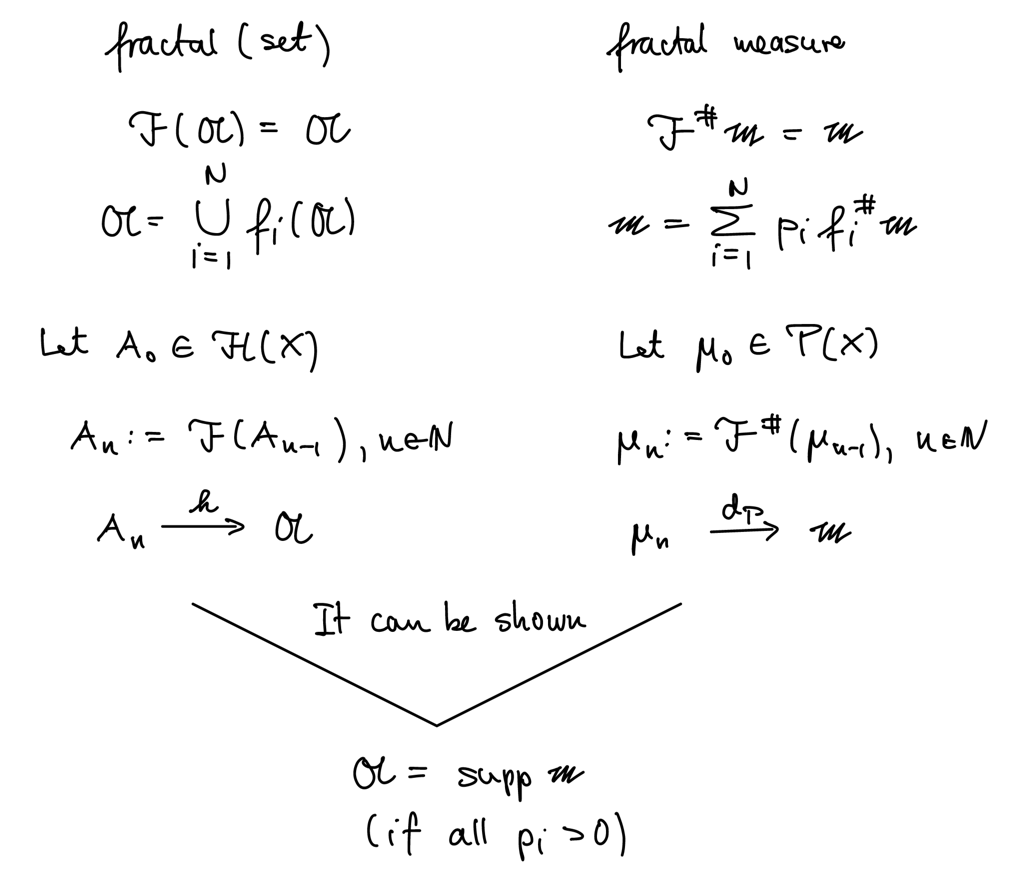 fractal (set)
𝓕(𝔄) = 𝔄
𝔄 = ⋃_{i=1}^{N} f_i(𝔄)
Let A_0 ∈ 𝓗(X)
A_n := 𝓕(A_{n-1}), n∈ℕ
A_n \xrightarrow{h} 𝔄
fractal measure
𝓕^# 𝓂 = 𝓂
𝓂 = ∑_{i=1}^{N} p_i f_i^# 𝓂
Let μ_0 ∈ 𝓟(X)
μ_n := 𝓕^#(μ_{n-1}), n∈ℕ
μ_n \xrightarrow{d_P} 𝓂
It can be shown
𝔄 = supp 𝓂
(if all p_i > 0)